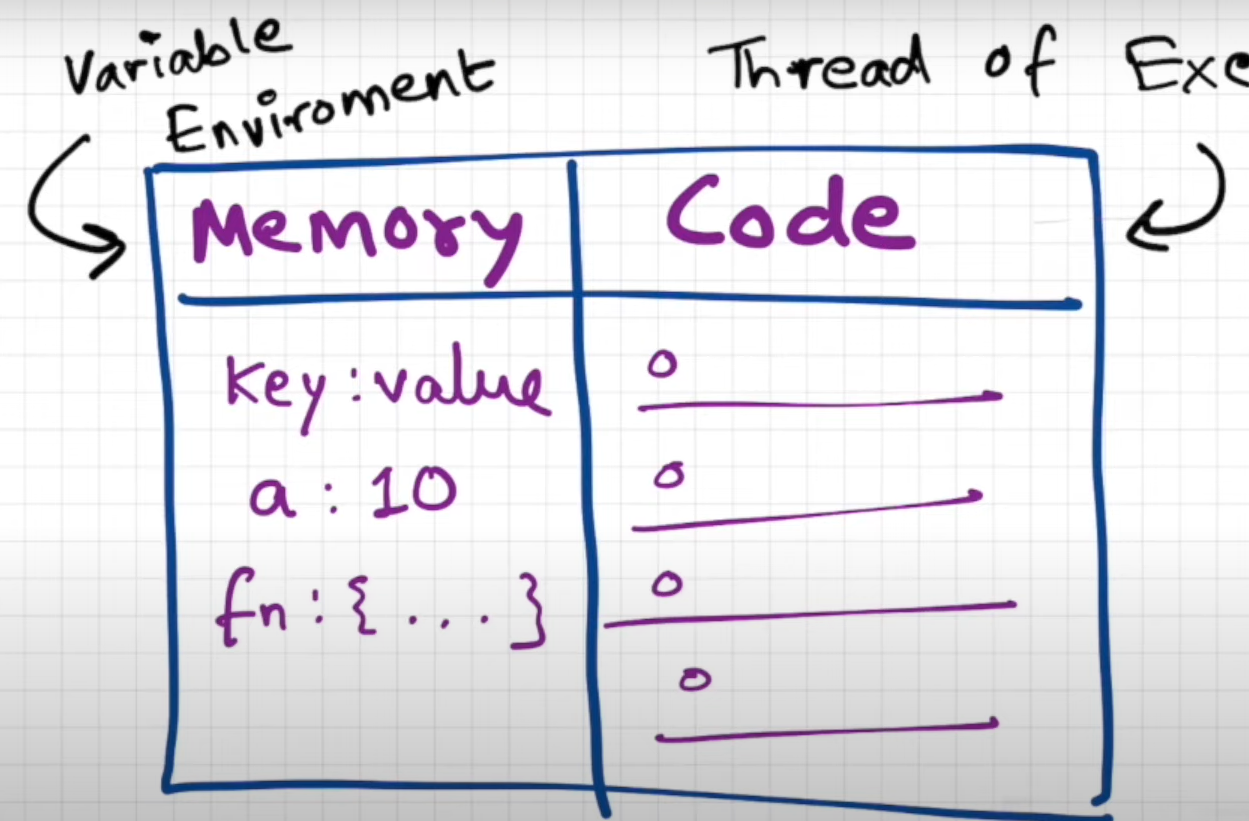 Variable
Enviroment
Thread of Exe
Memory
Code
key : value
a : 10
fn : { . . . . }